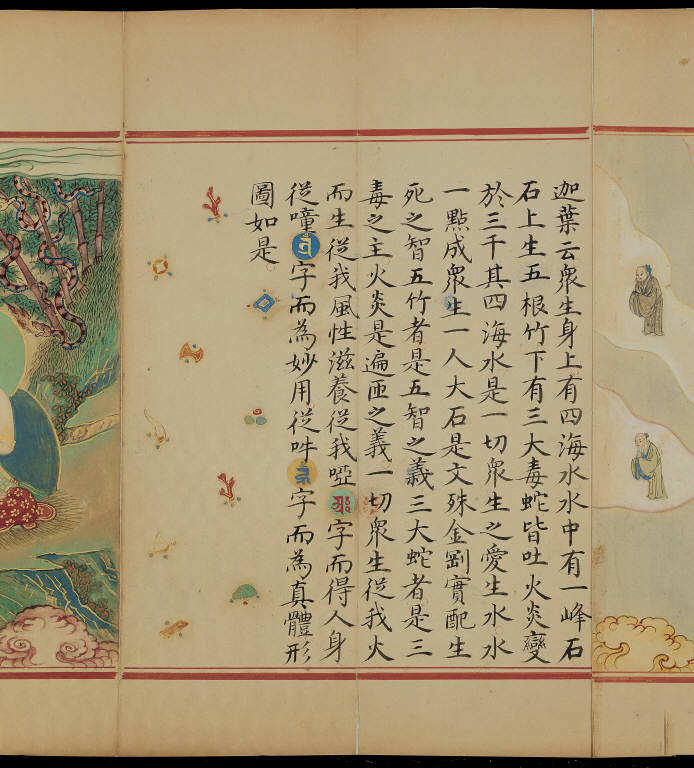 迦葉云衆生身上有四海水水中有一峰石
石上生五根竹下有三大毒蛇皆吐火炎變
於三千其四海水是一切衆生之愛生水水
一點成衆生一人大石是文殊金剛實配生
死之智五竹者是五智之義三大蛇者是三
毒之主火炎是遍匝之義一切衆生從我火
而生從我風性滋養從我啞字而得人身
從㘕字而為妙用從吽字而為真體形
圖如是